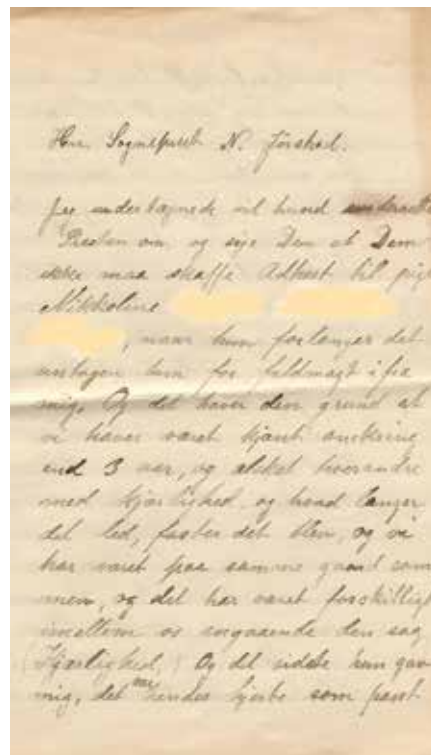 Hr. Sognepræst N. Förskod.
Jeg undertegnede vil hermed underrette
Presten om, og sige Dem at Dem
ikke maa skaffe Adkost til pige
Nikkoline
, naar hun forlanger det
untagen hun for fuldmagt ifra
mig. Og det haver den grund at
vi haver været kjent omkring
end 3 aar, og elsket hverandre
med kjærlighed, og hvad længer
det led, faster det blev, og vi
har været paa samme gaard som
men, og det har været forskilligt
imellem os angaaende den sag
(Kjærlighed.) Og det sidste hun gav
mig, det var hendes hjerte som pant